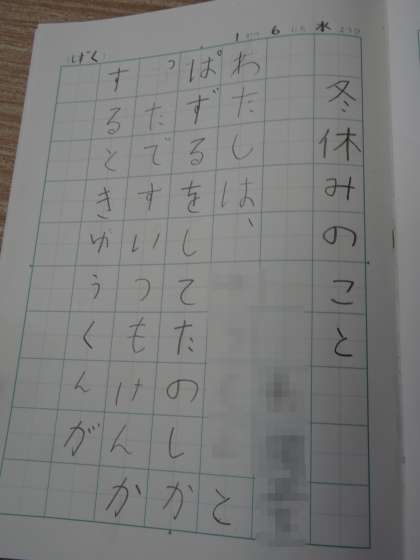 1がつ6にち水ようび
冬休みのこと
わたしは、と
ぱずるをしてたのしか
ったですいつもけんか
するときゆうくんが